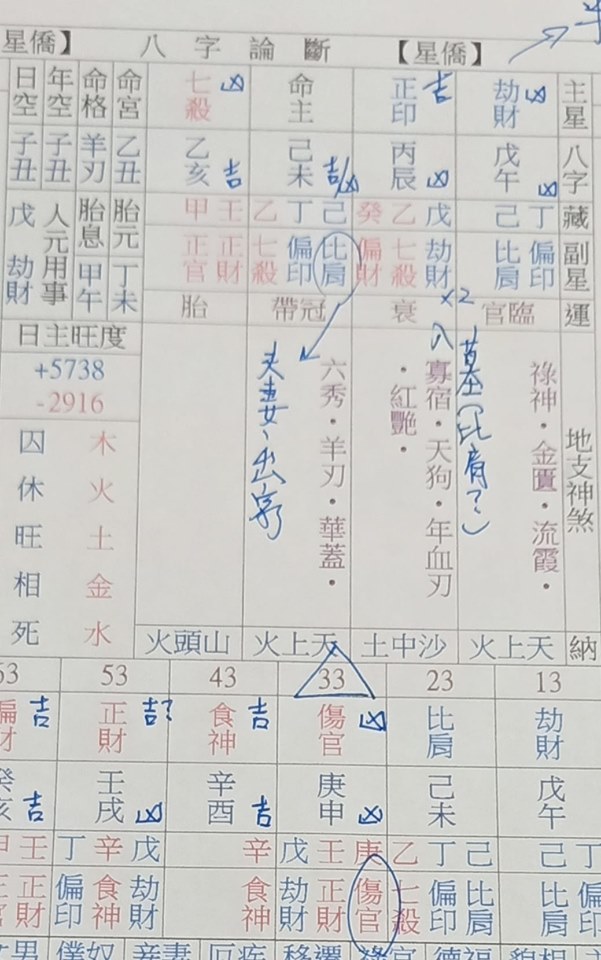 星僑】 八字論斷 【星僑】
日空 年空 命格 命宮 七殺 凶 命主 正印 吉 劫財 凶 主星
子丑 子丑 羊刃 乙丑 乙亥 吉 己未 吉/凶 丙辰 凶 戊午 凶 八字
戊 劫財 人元用事 胎息 甲午 胎元 丁未
甲 壬 乙 丁 己 癸 乙 戊 己 丁 藏
正官 正財 七殺 偏印 比肩 偏財 七殺 劫財 比肩 偏印 副星
胎 帶冠 衰 x2 官臨 運
日主旺度
+5738
-2916
囚 木
休 火
旺 土
相 金
死 水
夫妻、出家
六秀・羊刃・華蓋・
入墓(比肩?)
寡宿・天狗・年血刃
・紅艷・
祿神・金匱・流霞・
地支神煞
火頭山 火上天 土中沙 火上天 納
63 53 43 33 23 13
偏財 吉 正財 吉? 食神 吉 傷官 凶 比肩 劫財
癸亥 吉 壬戌 凶 辛酉 吉 庚申 凶 己未 戊午
甲 壬 丁 辛 戊 辛 戊 壬 庚 乙 丁 己 己 丁
正官 正財 偏印 食神 劫財 食神 劫財 正財 傷官 七殺 偏印 比肩 比肩 偏印
女男 僕奴 妾妻 厄疾 移遷 祿官 德福 貌相